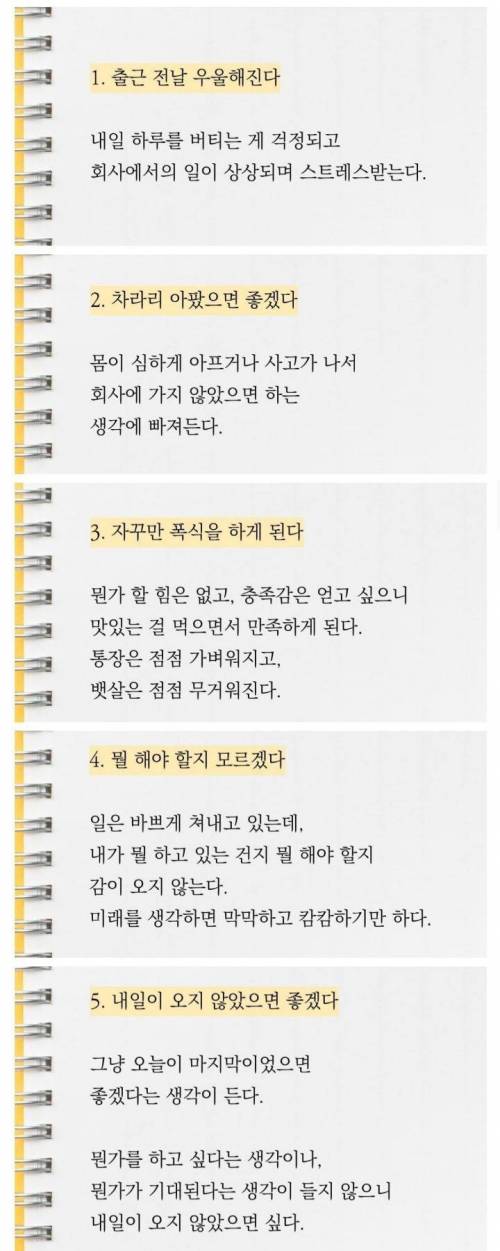 1. 출근 전날 우울해진다
내일 하루를 버티는 게 걱정되고
회사에서의 일이 상상되며 스트레스받는다.
2. 차라리 아팠으면 좋겠다
몸이 심하게 아프거나 사고가 나서
회사에 가지 않았으면 하는
생각에 빠져든다.
3. 자꾸만 폭식을 하게 된다
뭔가 할 힘은 없고, 충족감은 얻고 싶으니
맛있는 걸 먹으면서 만족하게 된다.
통장은 점점 가벼워지고,
뱃살은 점점 무거워진다.
4. 뭘 해야 할지 모르겠다
일은 바쁘게 쳐내고 있는데,
내가 뭘 하고 있는 건지 뭘 해야 할지
감이 오지 않는다.
미래를 생각하면 막막하고 캄캄하기만 하다.
5. 내일이 오지 않았으면 좋겠다
그냥 오늘이 마지막이었으면
좋겠다는 생각이 든다.
뭔가를 하고 싶다는 생각이나,
뭔가가 기대된다는 생각이 들지 않으니
내일이 오지 않았으면 싶다.